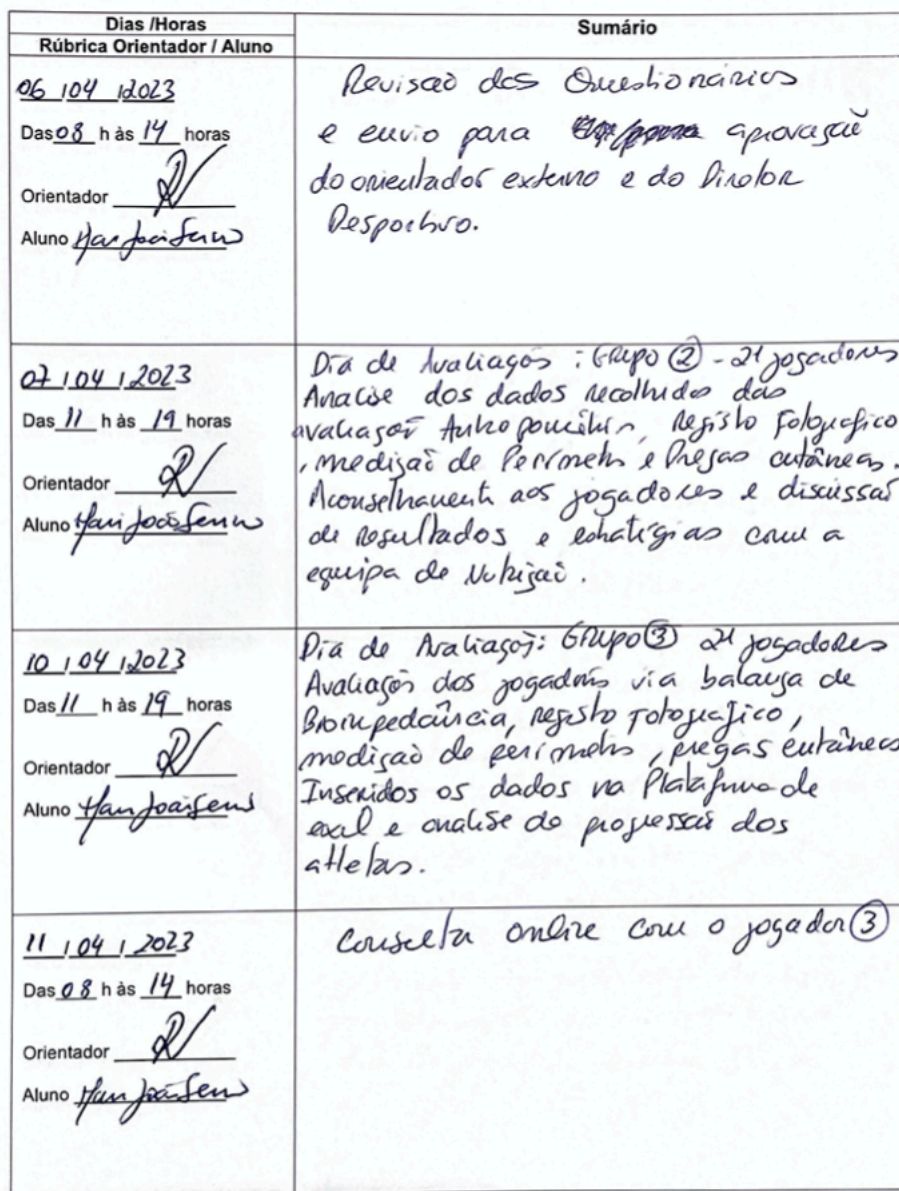 Dias /Horas
Rúbrica Orientador / Aluno
Sumário
06 / 04 / 2023
Das 08 h às 14 horas
Orientador
Aluno
Revisão dos Questionários
e envio para aprovação
do orientador externo e do Diretor
Desportivo.
07 / 04 / 2023
Das 11 h às 19 horas
Orientador
Aluno
Dia de Avaliações : Grupo 2 - 21 jogadores
Analise dos dados recolhidos das
avaliações Antropométrica, Registo Fotografico
, medição de Perímetros e Pregas cutâneas.
Aconselhamento aos jogadores e discussão
de resultados e estratégias com a
equipa de Nutrição.
10 / 04 / 2023
Das 11 h às 19 horas
Orientador
Aluno
Dia de Avaliação: GRUPO 3 21 jogadores
Avaliação dos jogadores via balança de
Bioimpedância, registo Fotográfico,
medição de perímetros, pregas cutâneas
Inseridos os dados na Plataforma de
excel e analise do progressão dos
atletas.
11 / 04 / 2023
Das 08 h às 14 horas
Orientador
Aluno
Consulta online com o jogador 3